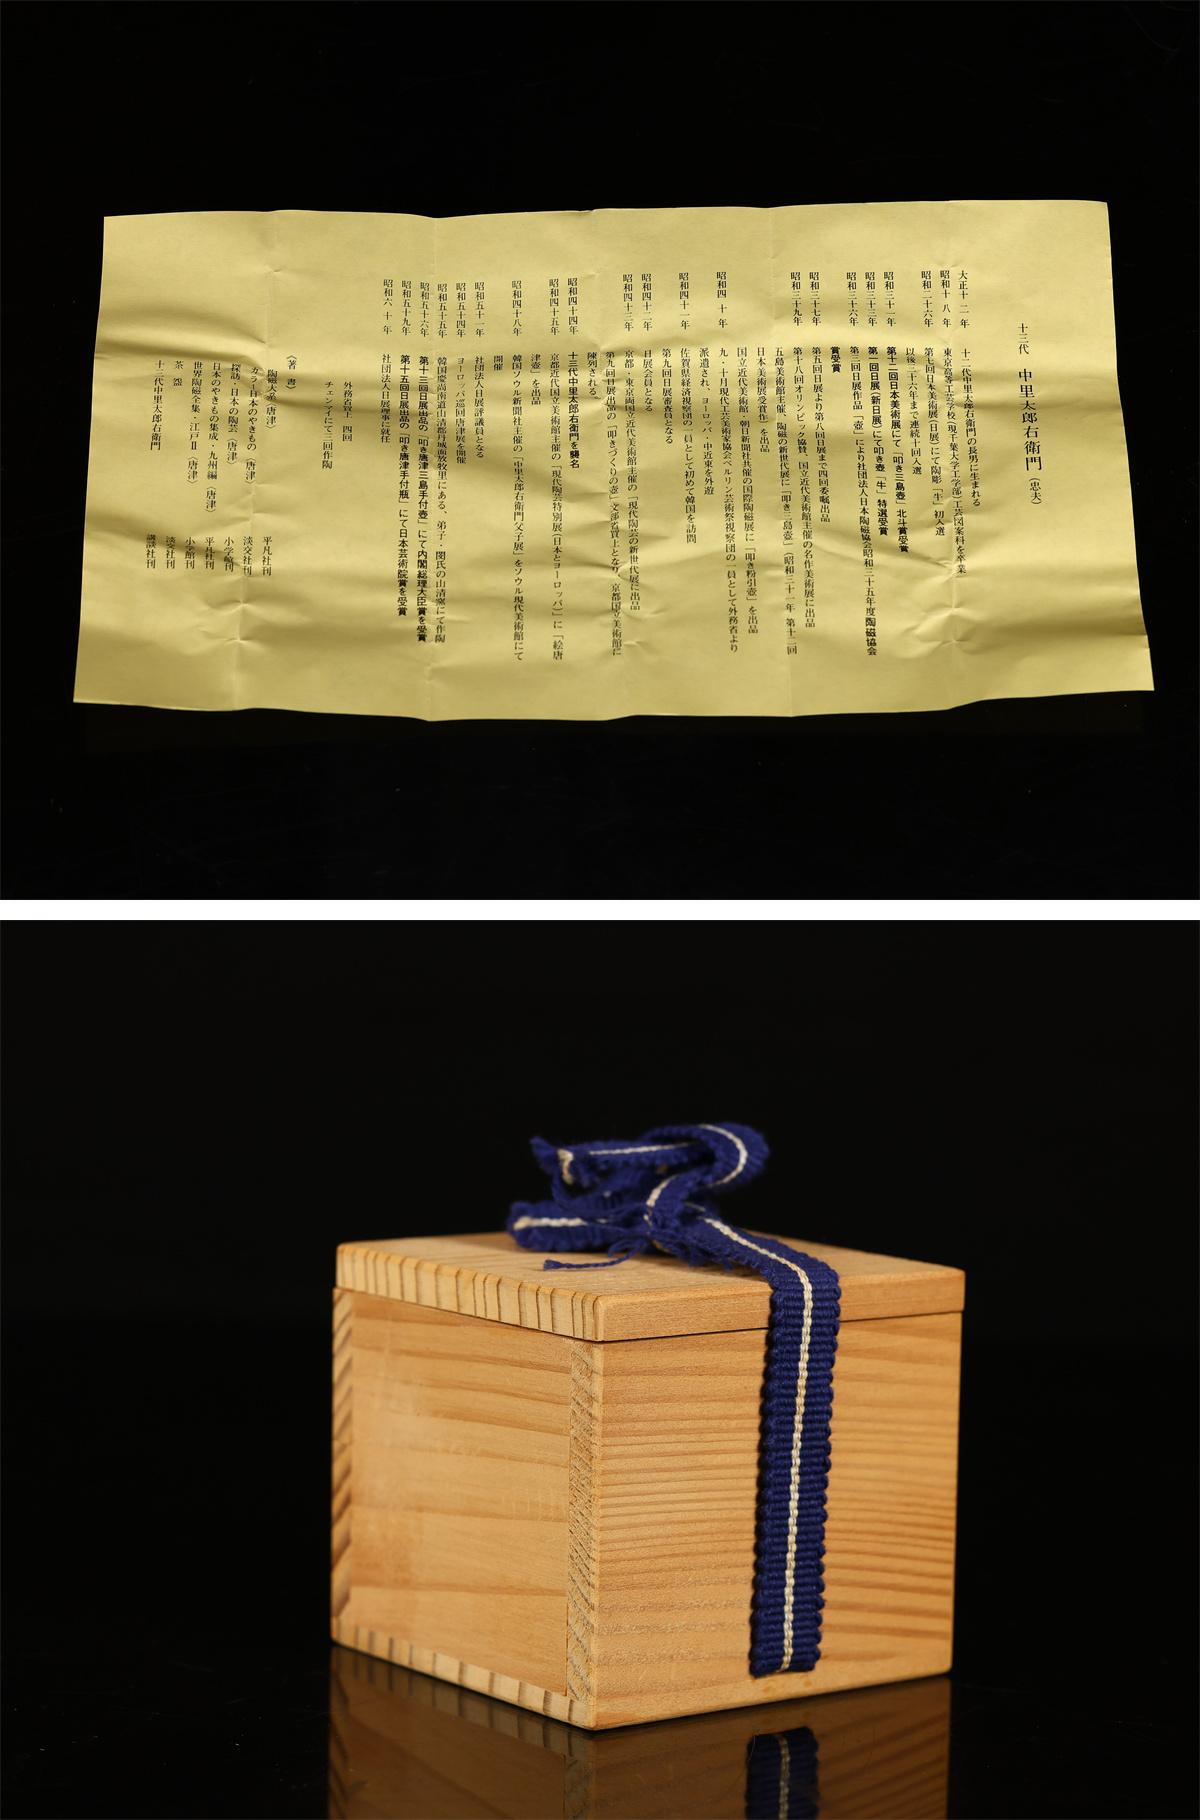 十三代 中里太郎右衛門(忠夫)
大正十二年 十二代中里太郎右衛門の長男に生まれる
昭和十八年 東京高等工芸学校(現千葉大学工学部)工芸図案科を卒業
昭和二十六年 第七回日本美術展(日展)にて陶彫「牛」初入選
以後三十六年まで連続十回入選
昭和三十一年 第十二回日本美術展にて「叩き三島壺」北斗賞受賞
昭和三十三年 第一回日展(新日展)にて叩き壺「牛」特選受賞
昭和三十六年 第三回日展作品「壺」により社団法人日本陶磁協会昭和三十五年度陶磁協会
賞受賞
昭和三十七年 第五回日展より第八回日展まで四回委嘱出品
昭和三十九年 第十八回オリンピック協賛、国立近代美術館主催の名作美術展に出品
五島美術館主催、陶磁の新世代展に「叩き三島壺」(昭和三十一年 第十二回
日本美術展受賞作)を出品
国立近代美術館・朝日新聞社共催の国際陶磁展に「叩き粉引壺」を出品
昭和四十年 九・十月現代工芸美術家協会ベルリン芸術祭視察団の一員として外務省より
派遣され、ヨーロッパ・中近東を外遊
昭和四十一年 佐賀県経済視察団の一員として初めて韓国を訪問
第九回日展審査員となる
昭和四十二年 日展会員となる
昭和四十三年 京都・東京両国立近代美術館主催の「現代陶芸の新世代展に出品
第九回日展出品の「叩きづくりの壺」文部省買上となり、京都国立美術館に
陳列される。
昭和四十四年 十三代中里太郎右衛門を襲名
昭和四十五年 京都近代国立美術館主催の「現代陶芸特別展(日本とヨーロッパ)」に「絵唐
津壺」を出品
昭和四十八年 韓国ソウル新聞社主催の「中里太郎右衛門父子展」をソウル現代美術館にて
開催
昭和五十一年 社団法人日展評議員となる
昭和五十四年 ヨーロッパ巡回唐津展を開催
昭和五十五年 韓国慶尚南道山清郡丹城面放牧里にある、弟子・閔氏の山清窯にて作陶
昭和五十六年 第十三回日展出品の「叩き唐津三島手付壺」にて内閣総理大臣賞を受賞
昭和五十九年 第十五回日展出品の「叩き唐津手付瓶」にて日本芸術院賞を受賞
昭和六十年 社団法人日展理事に就任
外務省買上 四回
チェンマイにて三回作陶
〈著書〉
陶磁大系〈唐津〉 平凡社刊
カラー日本のやきもの〈唐津〉 淡交社刊
探訪・日本の陶芸〈唐津〉 小学館刊
日本のやきもの集成・九州編〈唐津〉 平凡社刊
世界陶磁全集・江戸Ⅱ〈唐津〉 小学館刊
茶盌 淡交社刊
十三代中里太郎右衛門 講談社刊